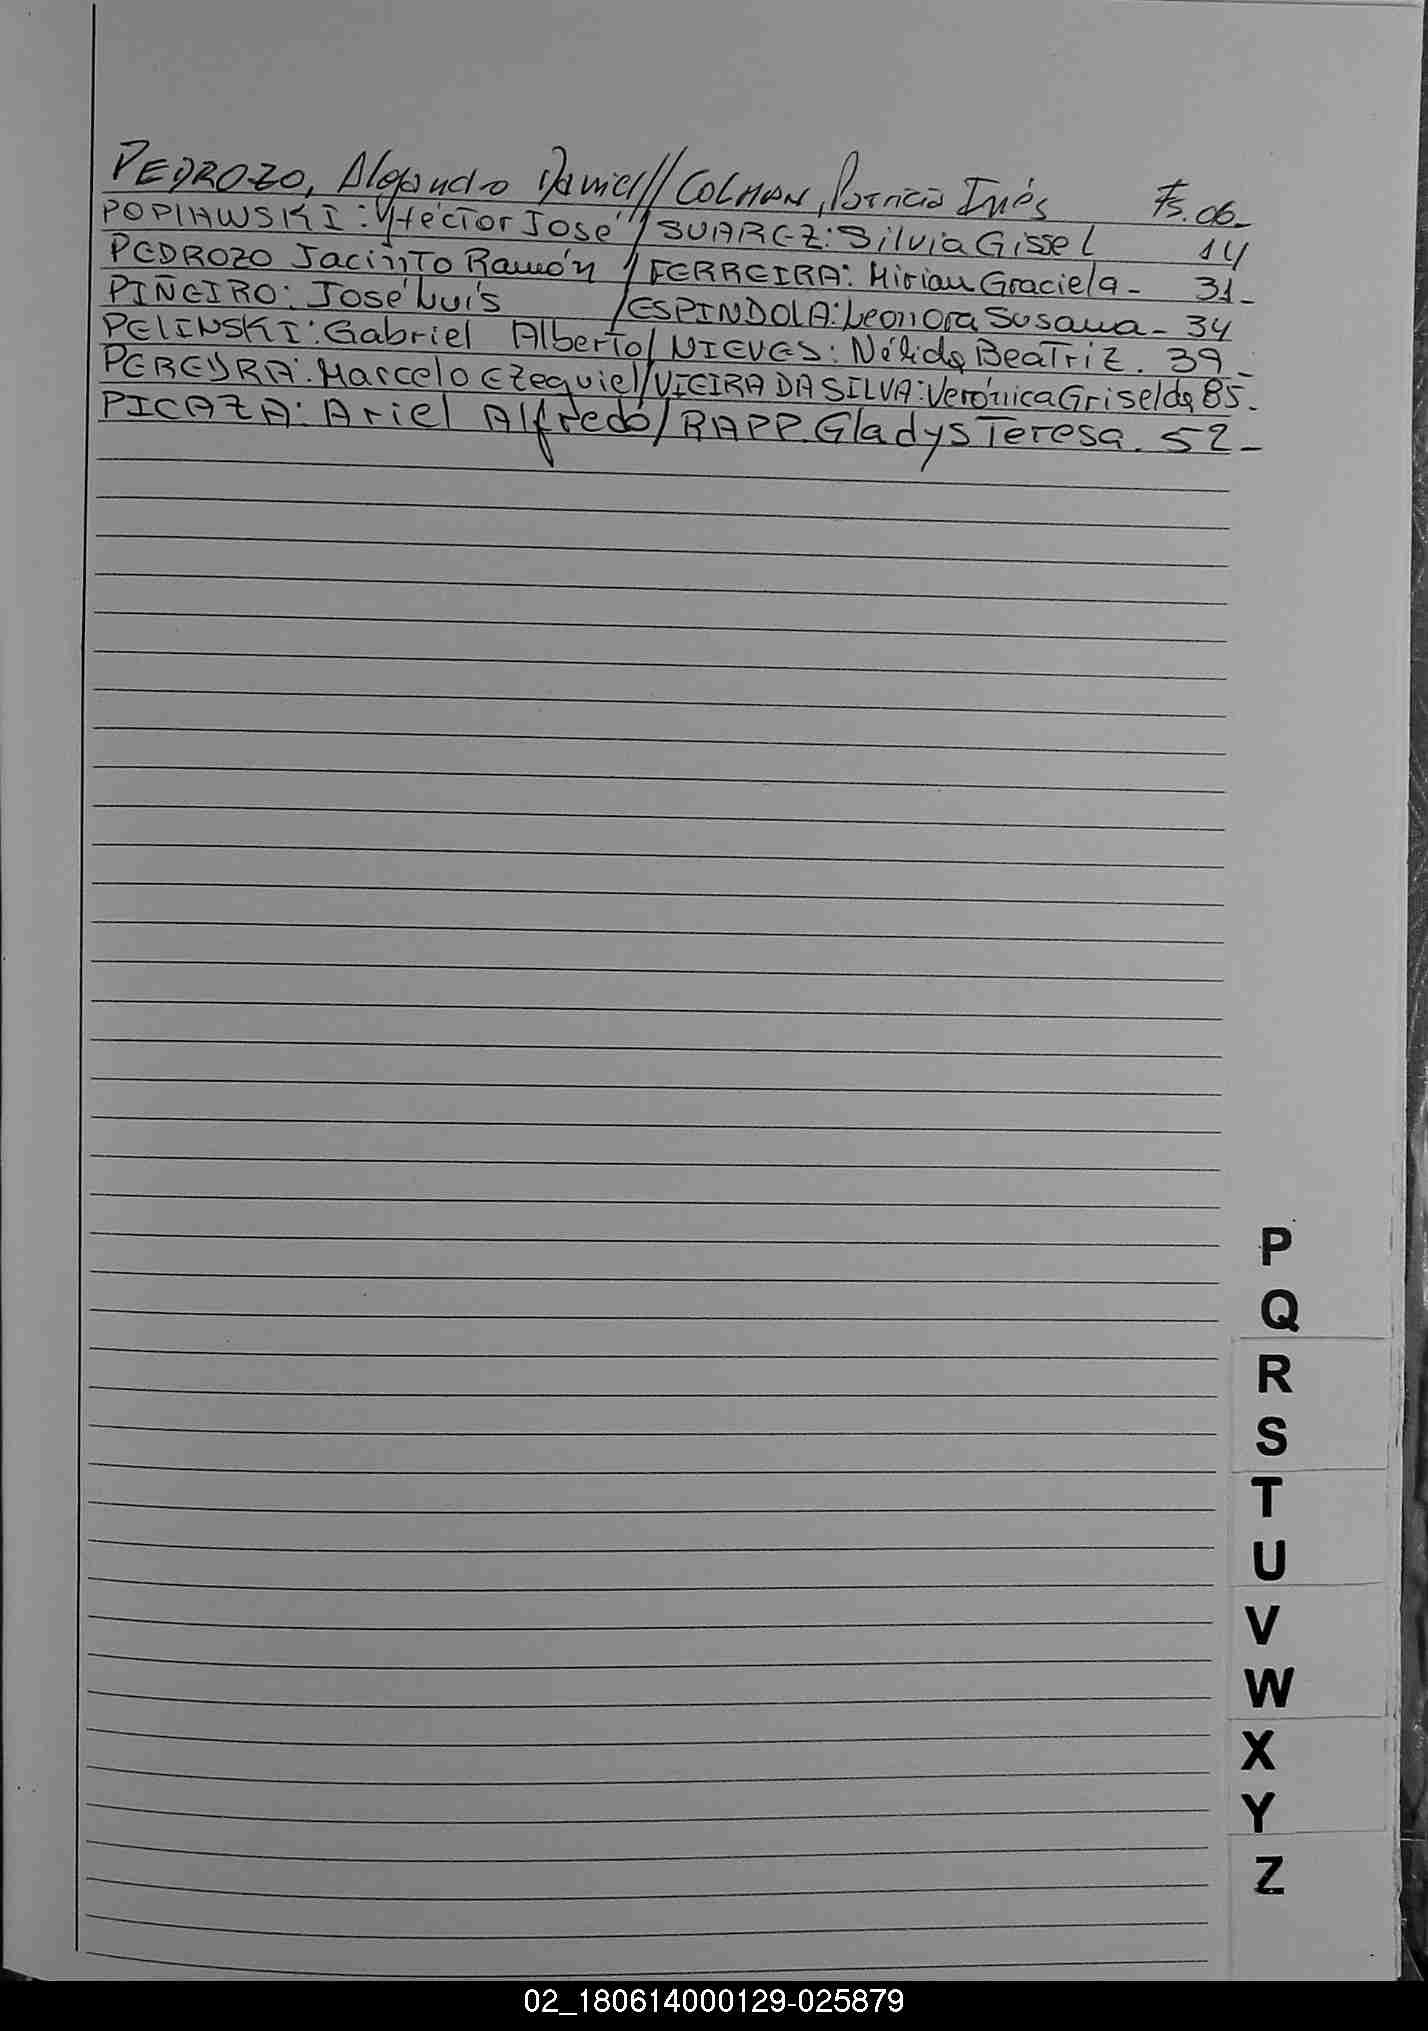 PEDROZO, Alejandro Daniel // COLMAN, Patricia Inés Fs. 06-
POPIAWSKI: Héctor José // SUAREZ: Silvia Gissel 14
PEDROZO Jacinto Ramón // FERREIRA: Mirian Graciela - 31-
PIÑEIRO: José Luís / ESPINDOLA: Leonora Susana - 34
PELINSKI: Gabriel Alberto / NIEVES: Nélida Beatriz. 39-
PEREYRA: Marcelo Ezequiel / VIEIRA DA SILVA: Verónica Griselda 85-
PICAZA: Ariel Alfredo / RAPP. Gladys Teresa. 52-
P
Q
R
S
T
U
V
W
X
Y
Z
02_180614000129-025879